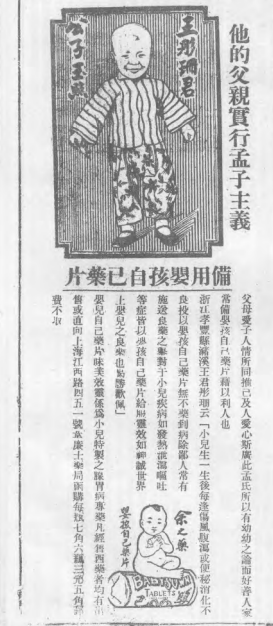 他的父親實行孟子主義
王彤珊君
公子玉照
備用嬰孩自己藥片
父母愛子人情所同推己及人愛心斯廣此孟氏所以有幼幼之論而好善人家
常備嬰孩自己藥片藉以利人也
浙江孝豐縣 溪王君彤珊云「小兒生一生後每逢傷風腹瀉或便秘消化不
良投以嬰孩自己藥片無不藥到病除鄙人常有
施送良藥之舉對于小兒疾病如發熱泄瀉嘔吐
等症皆以嬰孩自己藥片給服靈效如神誠世界
上嬰兒之良藥也 勝歡佩」
嬰兒自己藥片味美效靈係為小兒特製之腸胃病專藥凡經售西藥者均有出
售或直向上海江西路四五一號韋廉士藥局函購每瓶七角六瓶三元五角郵
費不取
余之藥
嬰孩自己藥片
BABY'S OWN
TABLETS